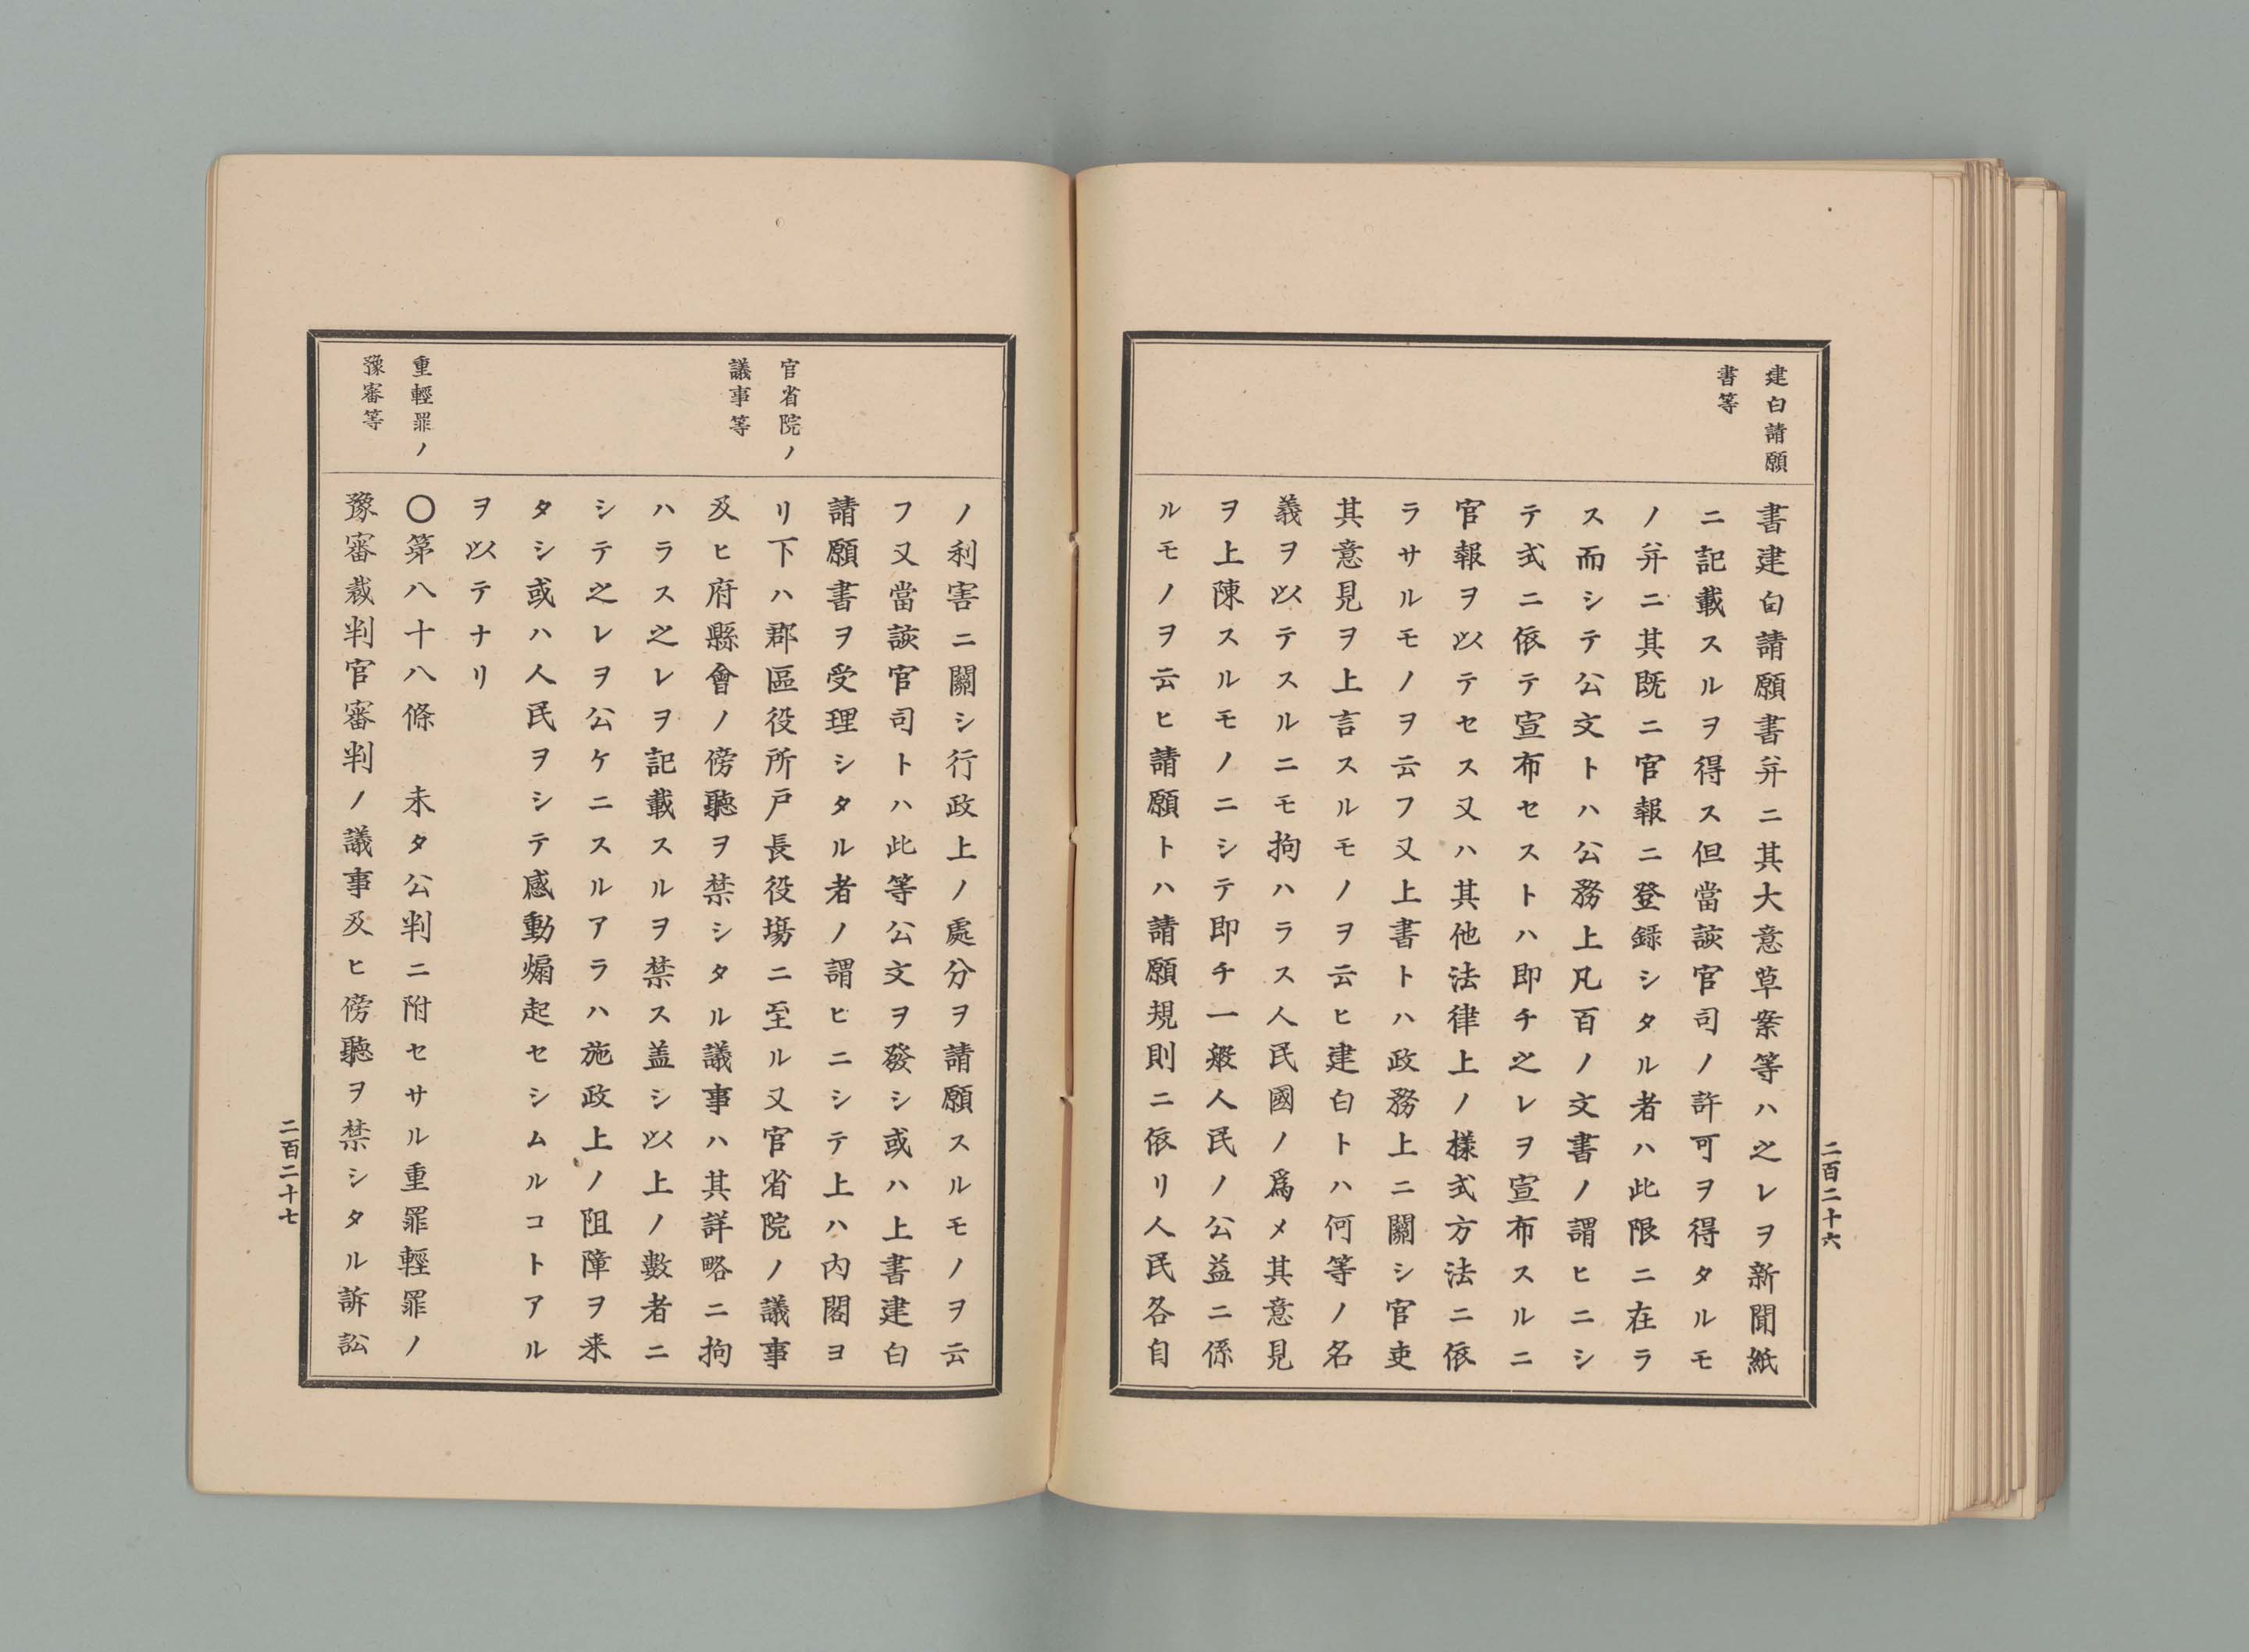 建白請願
書等
書建白請願書并ニ其大意草案等ハ之レヲ新聞紙
ニ記載スルヲ得ス但當該官司ノ許可ヲ得タルモ
ノ并ニ其既ニ官報ニ登録シタル者ハ此限ニ在ラ
ス而シテ公文トハ公務上凡百ノ文書ノ謂ヒニシ
テ式ニ依テ宣布セストハ即チ之レヲ宣布スルニ
官報ヲ以テセス又ハ其他法律上ノ樣式方法ニ依
ラサルモノヲ云フ又上書トハ政務上ニ關シ官吏
其意見ヲ上言スルモノヲ云ヒ建白トハ何等ノ名
義ヲ以テスルニモ拘ハラス人民國ノ爲メ其意見
ヲ上陳スルモノニシテ即チ一般人民ノ公益ニ係
ルモノヲ云ヒ請願トハ請願規則ニ依リ人民各自
二百二十六
官省院ノ
議事等
重輕罪ノ
豫審等
ノ利害ニ關シ行政上ノ處分ヲ請願スルモノヲ云
フ又當該官司トハ此等公文ヲ發シ或ハ上書建白
請願書ヲ受理シタル者ノ謂ヒニシテ上ハ内閣ヨ
リ下ハ郡區役所戸長役塲ニ至ル又官省院ノ議事
及ヒ府縣會ノ傍聽ヲ禁シタル議事ハ其詳略ニ拘
ハラス之レヲ記載スルヲ禁ス盖シ以上ノ數者ニ
シテ之レヲ公ケニスルアラハ施政上ノ阻障ヲ来
タシ或ハ人民ヲシテ感動煽起セシムルコトアル
ヲ以テナリ
〇第八十八條　未タ公判ニ附セサル重罪輕罪ノ
豫審裁判官審判ノ議事及ヒ傍聽ヲ禁シタル訴訟
二百二十七